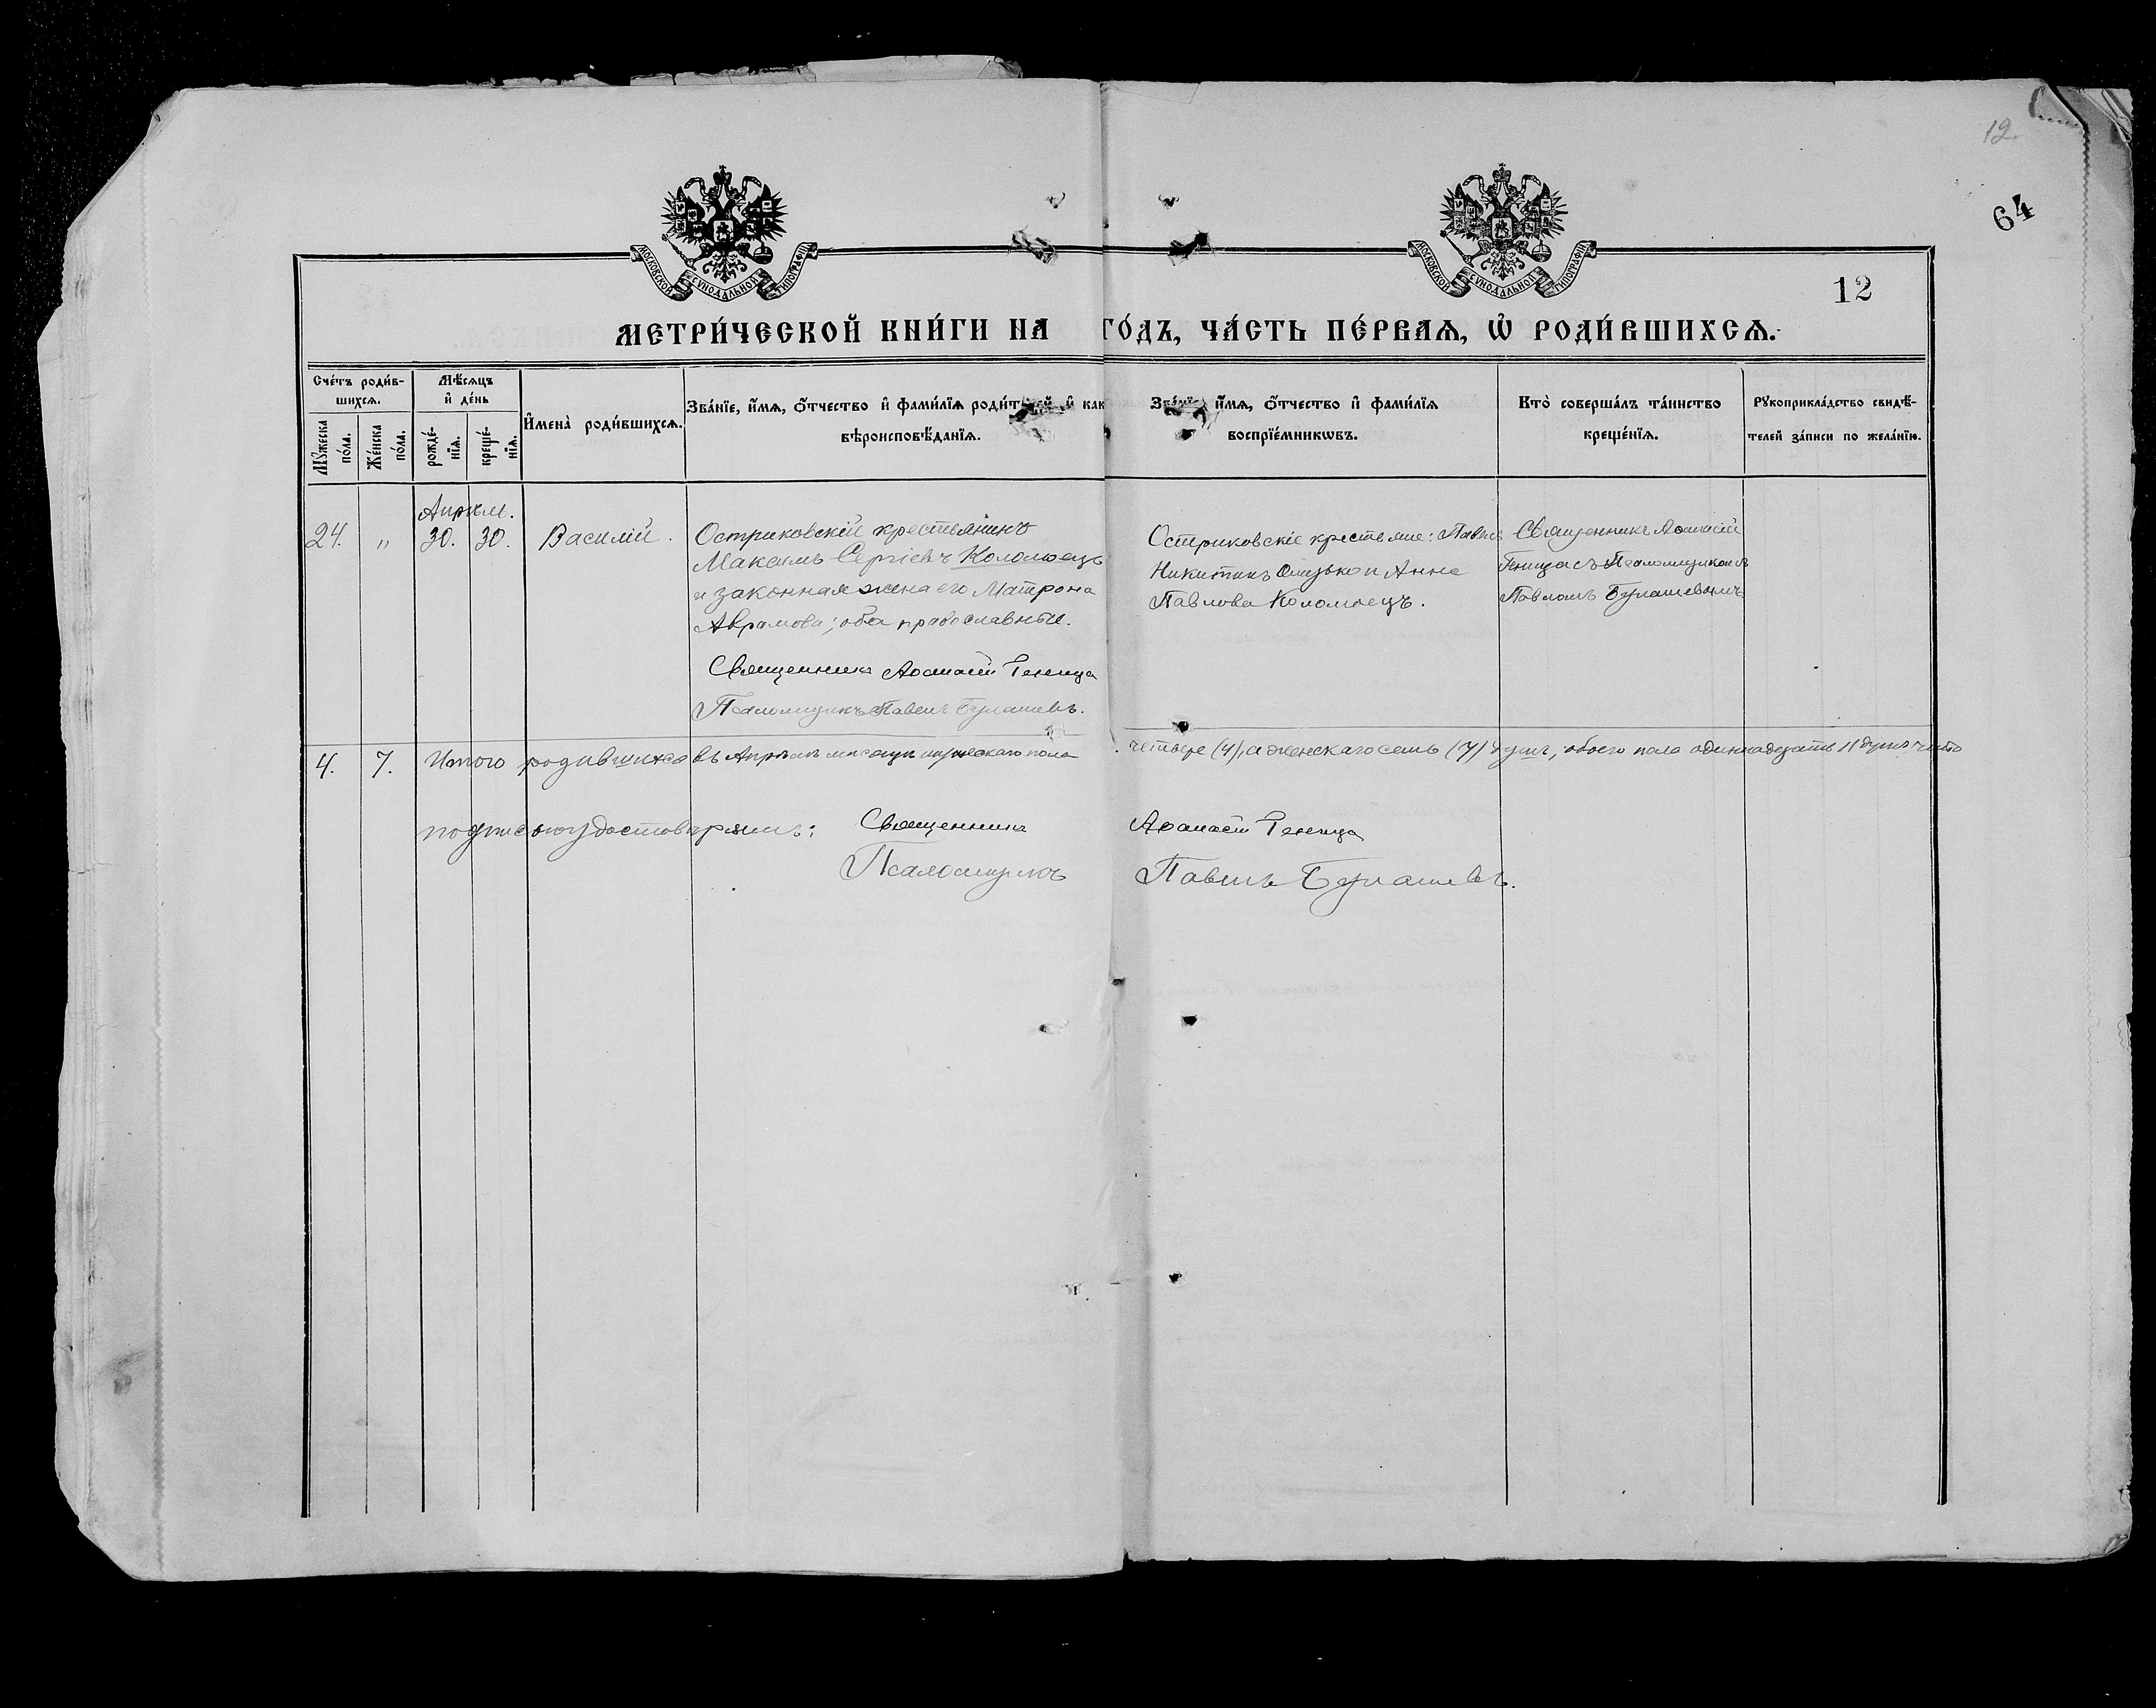 12.
64
МОСКОВСКОЙ СѴНОДАЛЬНОЙ ТИПОГРАФІИ
МОСКОВСКОЙ СѴНОДАЛЬНОЙ ТИПОГРАФІИ
12
МЕТРИ́ЧЕСКОЙ КНИ́ГИ НА ГО́ДЪ, ЧА́СТЬ ПЕ́РВАѦ, Ѡ҆ РОДИ́ВШИХСѦ.
Сче́тъ роди́в-
шихсѧ.
Мꙋ́жеска
по́ла.
Же́нска
по́ла.
Мѣ́сѧцъ
и҆ де́нь
рожде́-
нїѧ.
креще́-
нїѧ.
И҆мена̀ роди́вшихсѧ.
Зва́нїе, и҆́мѧ, ѻ҆́тчество и҆ фами́лїѧ роди́телей, и҆ как
вѣроисповѣ́данїѧ.
Зва́нїе, и҆́мѧ, ѻ҆́тчество и҆ фами́лїѧ
воспрїе́мникѡвъ.
Кто̀ соверша́лъ та́инство
креще́нїѧ.
Рꙋкоприкла́дство свидѣ́-
телей за́писи по жела́нїю.
Апрѣль.
24. " 30. 30. Василій.
Остриковскій крестьянинъ
Максимъ Сергіевъ Коломоецъ
и законная жена его Матрона
Аврамова; оба православные.
Священникъ Аѳанасій Геница
Псаломщикъ Павелъ Булашевъ.
Остриковскіе крестьяне: Павелъ
Никитинъ и Анна
Павлова Коломоецъ.
Священникъ Аѳанасій
Геница съ Псаломщикомъ
Павломъ Булашевымъ
4. 7. Итого родившихся въ Апрѣлѣ мѣсяцѣ мужескаго пола четыре (4), а женскаго семь (7) душъ, обоего пола одиннадцать 11 душъ что
подписью удостовѣряемъ: Священникъ Аѳанасій Геница
Псаломщикъ Павелъ Булашевъ.